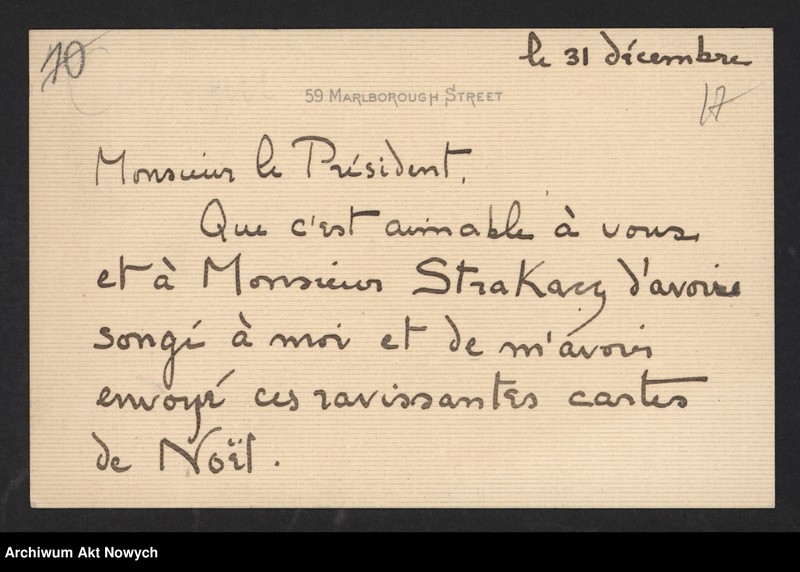 70
le 31 décembre
59 MARLBOROUGH STREET
17
Monsieur le Président,
Que c'est aimable à vous,
et à Monsieur Strakacz d'avoir
songé à moi et de m'avoir
envoyé ces ravissantes cartes
de Noël.
Archiwum Akt Nowych